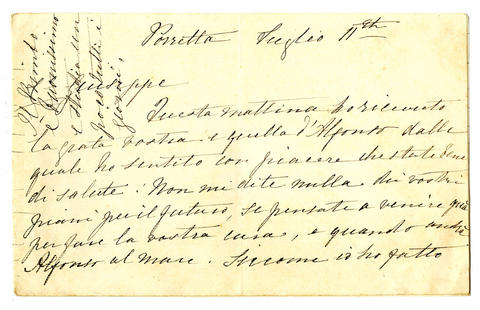 Porretta Luglio 11th
Giuseppe
Questa mattina ho ricevuto
la grata vostra e quella d'Alfonso dalle
quale ho sentito con piacere che state bene
di salute. Non mi dite nulla dei vostri
piani per il futuro, se pensate a venire qua
per fare la vostra cura, e quando andrà
Alfonso al mare. Siccome io ho fatto
Il Bimbo
è buonissimo
e studia un
po' tutti i
giorni.